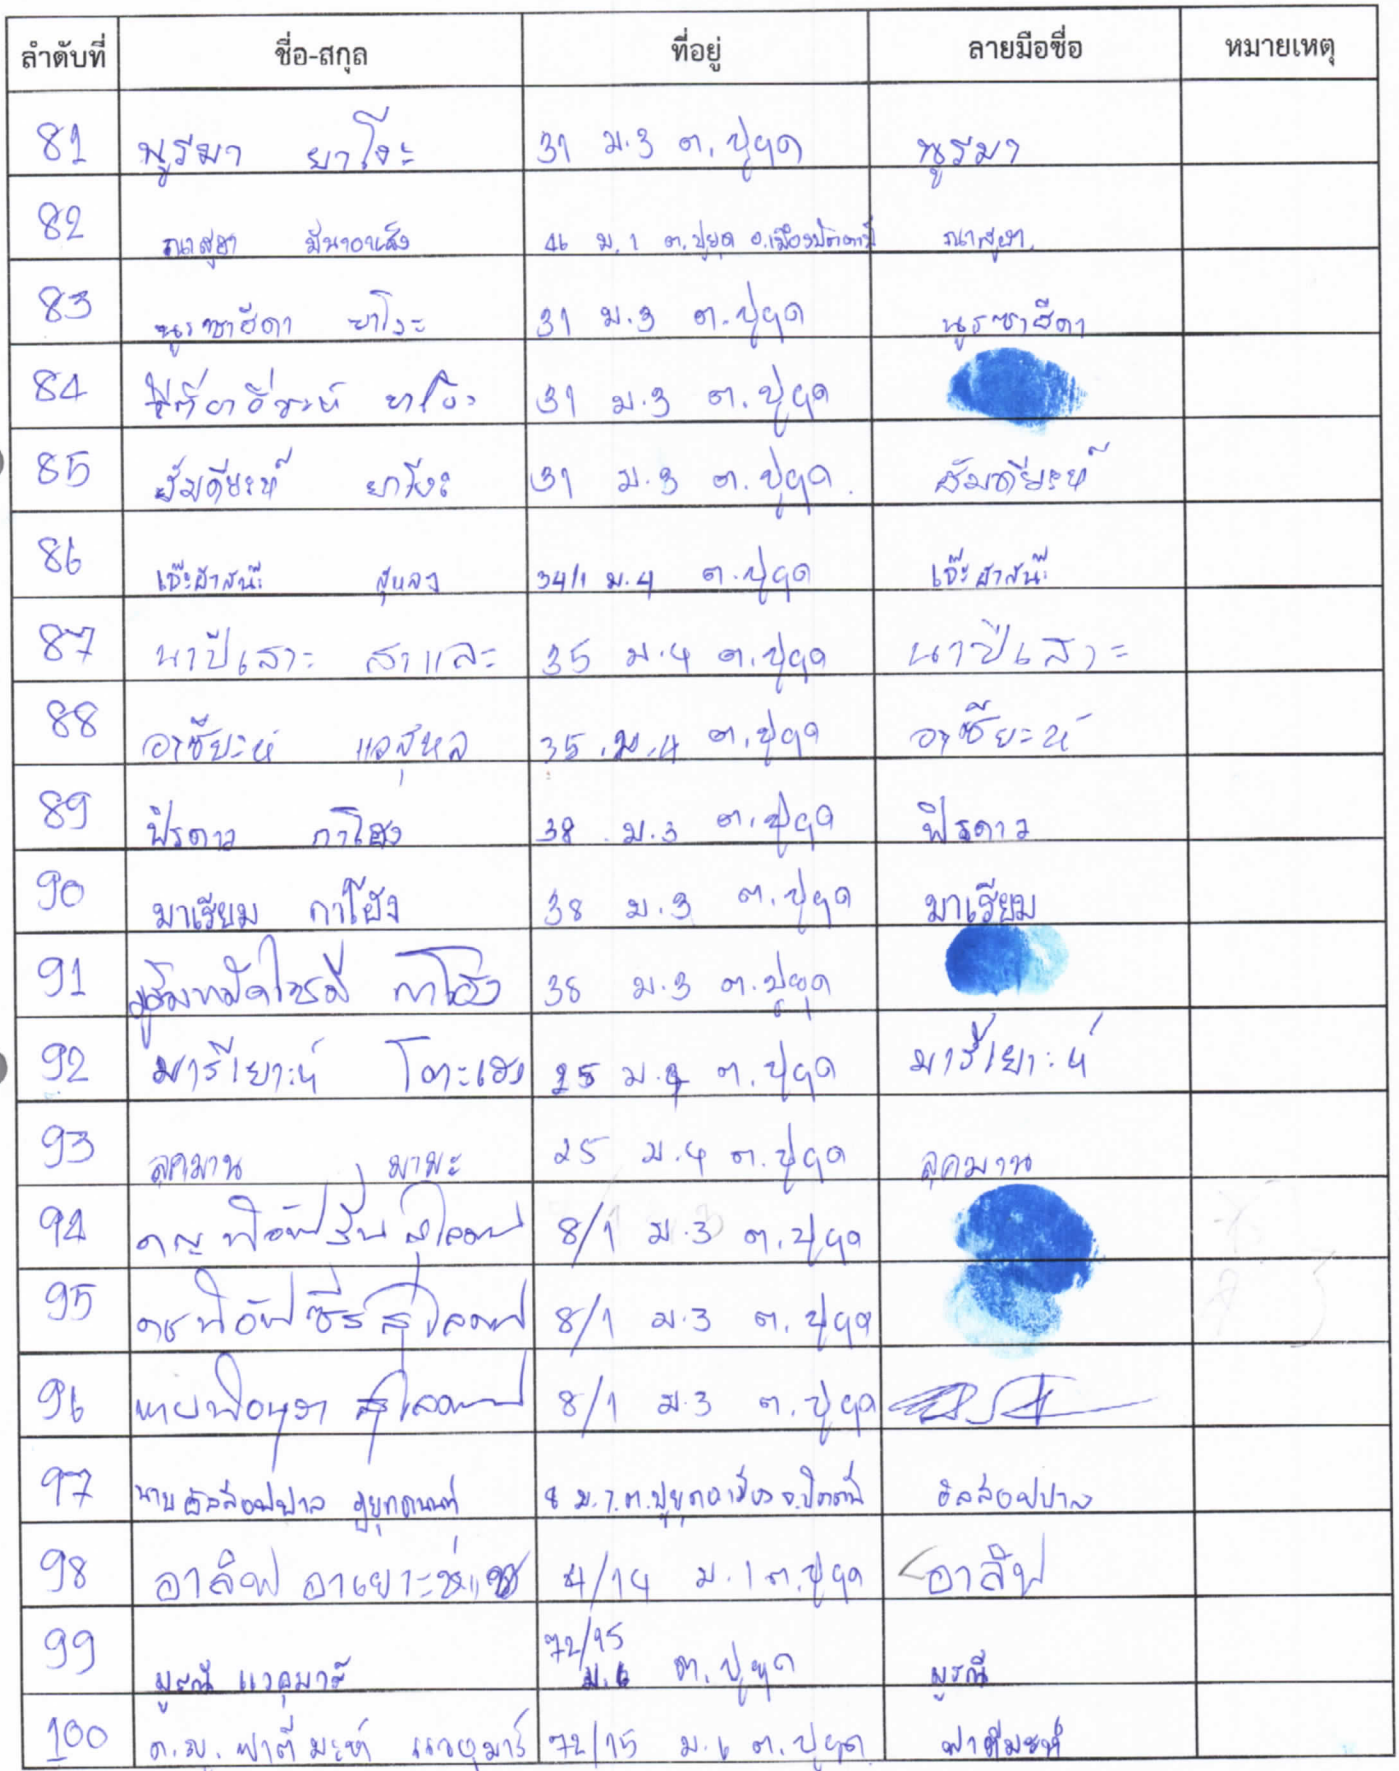 ลำดับที่ ชื่อ-สกุล ที่อยู่ ลายมือชื่อ หมายเหตุ
81 นูรีมา ยาโงะ 31 ม.3 ต.ปูยุด นูรีมา
82 มีนาอาหลัง 46 ม.1 ต.ปูยุด อ.เมืองปัตตานี
83 นูรซาฮีดา ยาโงะ 31 ม.3 ต.ปูยุด นูรซาฮีดา
84 ยาโงะ 31 ม.3 ต.ปูยุด
85 ฮัมดียะห์ ยาโงะ 31 ม.3 ต.ปูยุด ฮัมดียะห์
86 เจ๊ะฮาสน๊ะ สุหลง 34/1 ม.4 ต.ปูยุด เจ๊ะฮาสน๊ะ
87 นาปีเสาะ สาและ 35 ม.4 ต.ปูยุด นาปีเสาะ
88 อาซียะห์ แวสุหล 35 ม.4 ต.ปูยุด อาซียะห์
89 ฟิรดาว กาโฮง 38 ม.3 ต.ปูยุด ฟิรดาว
90 มาเรียม กาโฮ้ง 38 ม.3 ต.ปูยุด มาเรียม
91 38 ม.3 ต.ปูยุด
92 มารีเยาะห์ โตะเฮง 25 ม.4 ต.ปูยุด มารีเยาะห์
93 ลุคมาน มามะ 25 ม.4 ต.ปูยุด ลุคมาน
94 8/1 ม.3 ต.ปูยุด
95 8/1 ม.3 ต.ปูยุด
96 8/1 ม.3 ต.ปูยุด
97 นาย 8 ม.7 ต.ปูยุด อ.เมือง จ.ปัตตานี
98 อาลีฟ 4/14 ม.1 ต.ปูยุด อาลีฟ
99 มูรณี แวดุมารี 72/15 ม.6 ต.ปูยุด มูรณี
100 ด.ญ. ฟาตีมะห์ แวดุมารี 72/15 ม.6 ต.ปูยุด ฟาตีมะห์